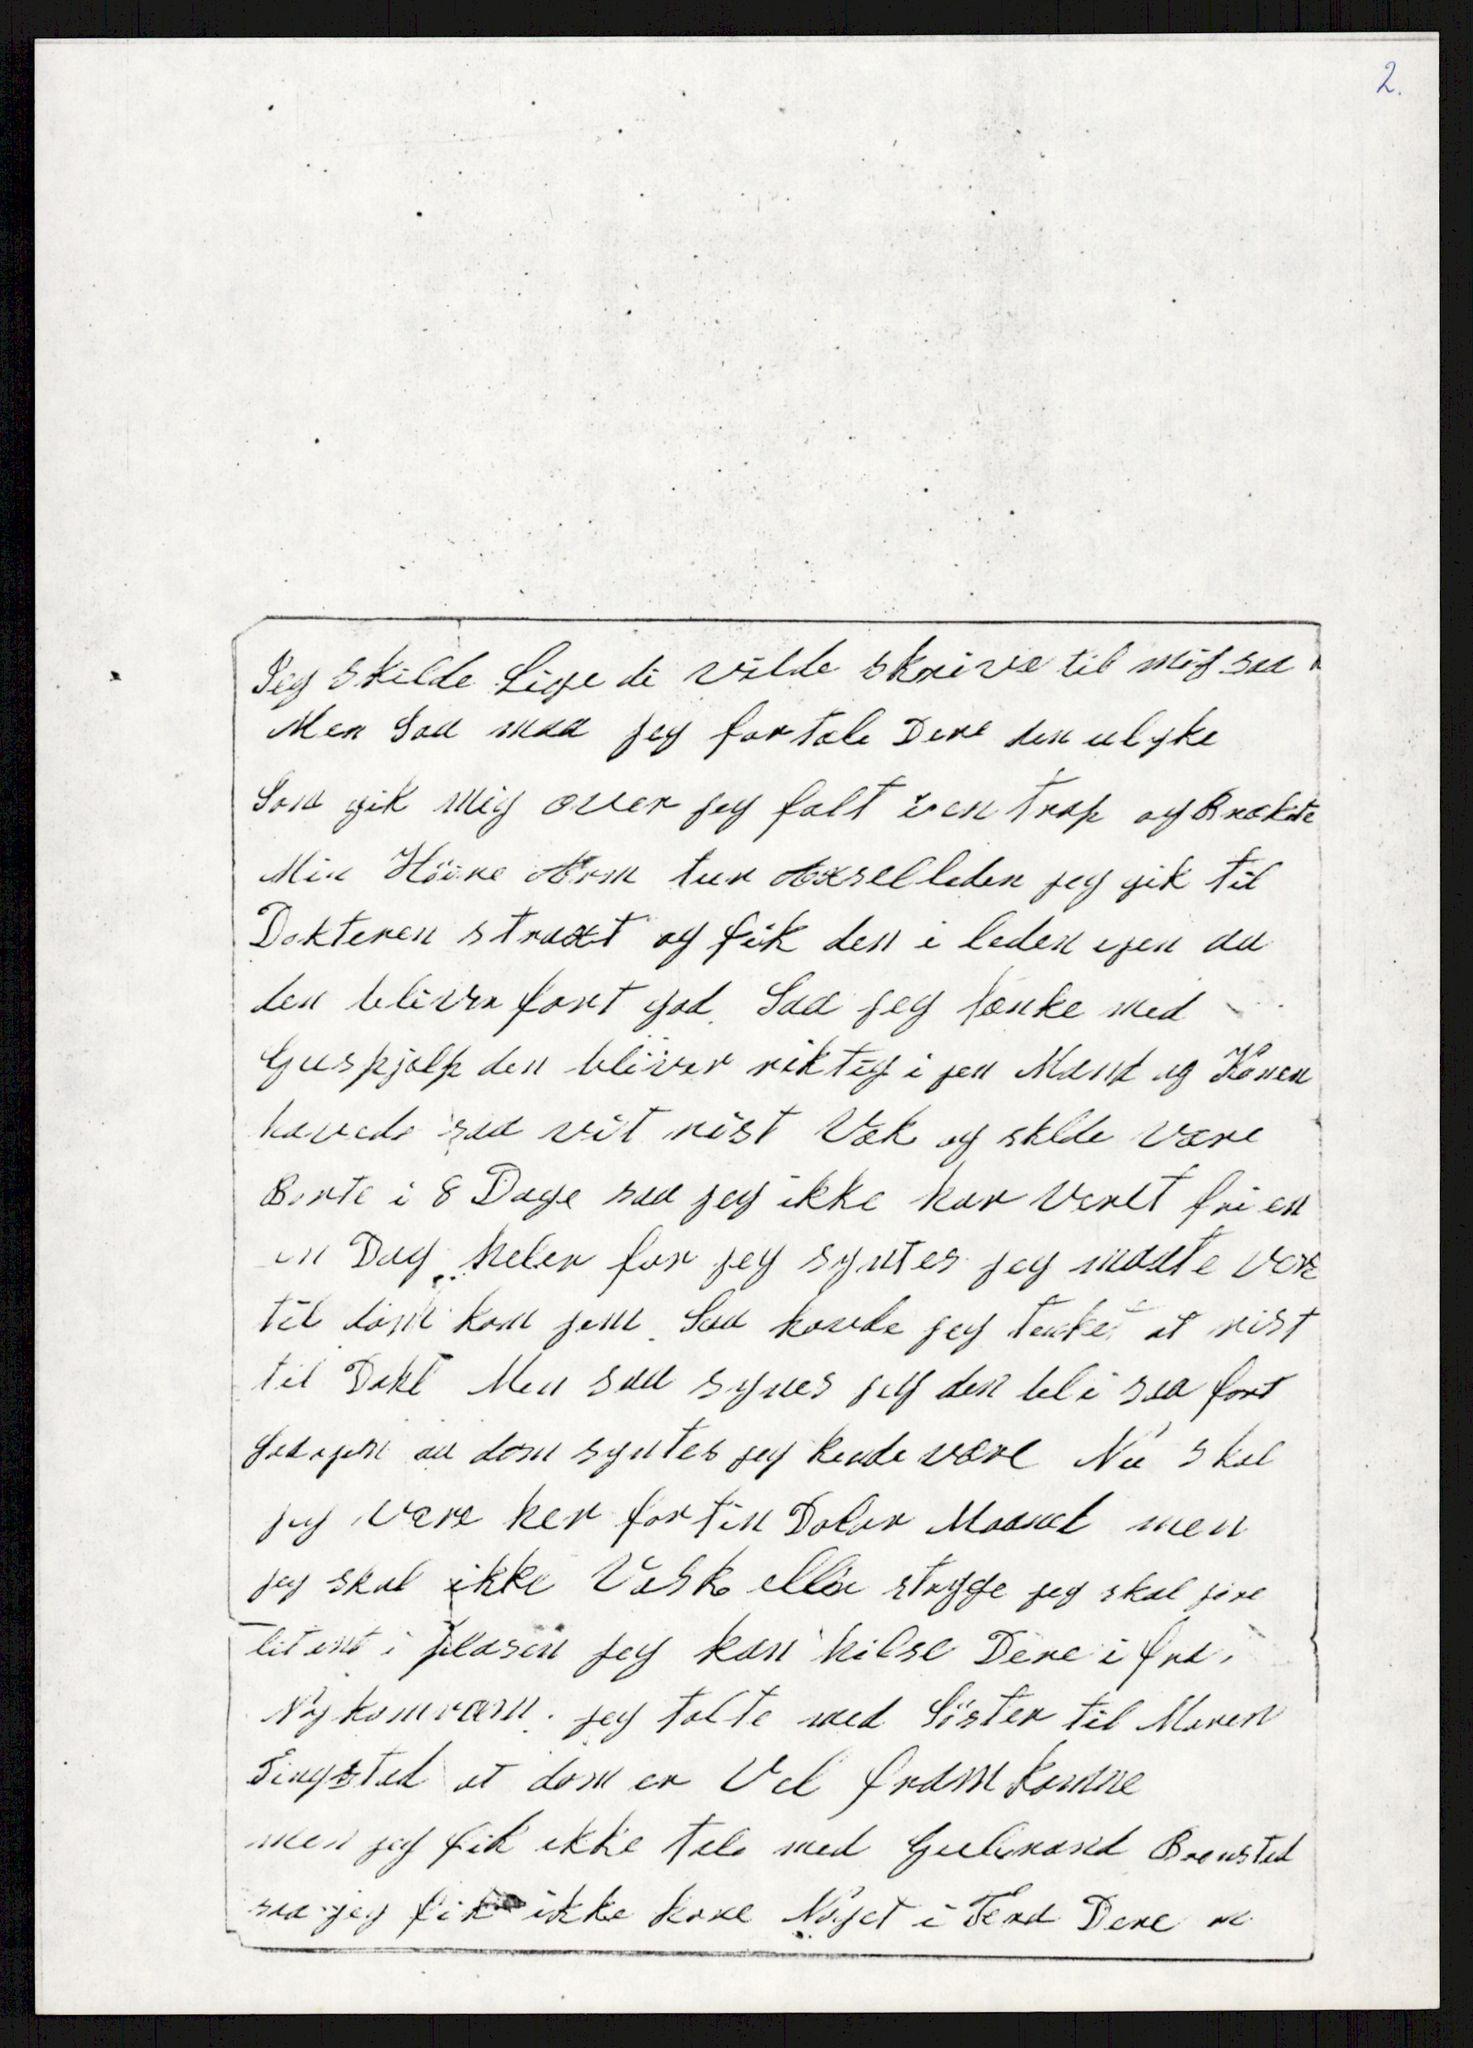 2.
Jeg skilde Sige di vilde skrive til mig saa
Men Saa maa jeg fortale Dere den ulyke
Som gik mig over jeg falt i en trap og Brækte
Min Höire Arm tur Axselleden jeg gik til
Dokteren straxt og fik den i leden igen aa
den bliver fort god Saa jeg tænke med
Gushjælp den bliver riktig i jen Mand og Konen
havede saa vit rist Væk og sklde være
Borte i 8 Dage saa jeg ikke har Veret fri en
en Dag heler for jeg syntes jeg maate være
til dom kom jem. Saa havde jeg tenket at rist
til Dokt Men saa synes jeg den bli saa fort
God igen aa dom syntes jeg kunde være Nu skal
jeg være her for tin Dolar Maanet men
jeg skal ikke Vask eller stryge jeg skal jøre
lit ent i plasen jeg kan hilse Dere i fra
Nykomvarn. jeg talte med Söster til Maren
Tingstad at dom er Vel fram komne
men jeg fik ikke tale med Gulbrand Braastad
saa jeg fik ikke høre Nøget i Fra Dere